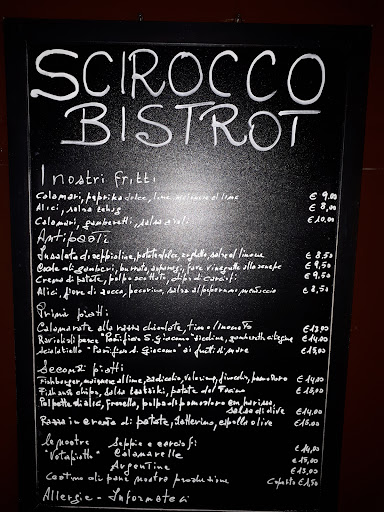 SCIROCCO
BISTROT
I nostri fritti
Calamari, paprika dolce, lime, maionese al lime € 9,00
Alici, salsa € 8,00
Calamari, gamberetti, salsa aioli € 10,00
Antipasti
Insalata di seppioline, patata dolce, salsa al limone € 8,50
Code di gamberi, burrata, asparagi, € 9,50
Crema di patate, polpo scottato, chips di carciofi € 9,50
Alici, fiore di zucca, pecorino, salsa al peperone, € 8,50
Primi piatti
Calamarata alla rassa limonato € 13,00
Ravioli di pesce "Pastificio S. Giacomo" € 14,00
Scialatielli "Pastificio S. Giacomo" ai frutti di mare € 15,00
Secondi piatti
Fishburger, maionese al lime, radicchio, finocchi, pomodoro € 14,00
Fish and chips, salsa tartara, patate del Fucino € 15,00
Polpette di alici, Fronello, polpa di pomodoro
salsa di olive € 14,00
in crema di patate, datterino, olive € 15,00
le nostre Seppie e carciofi € 14,00
Calamarelle € 15,00
Argentine € 13,00
Costino di pane nostra produzione Coperto € 1,50
Allergie - Informateci